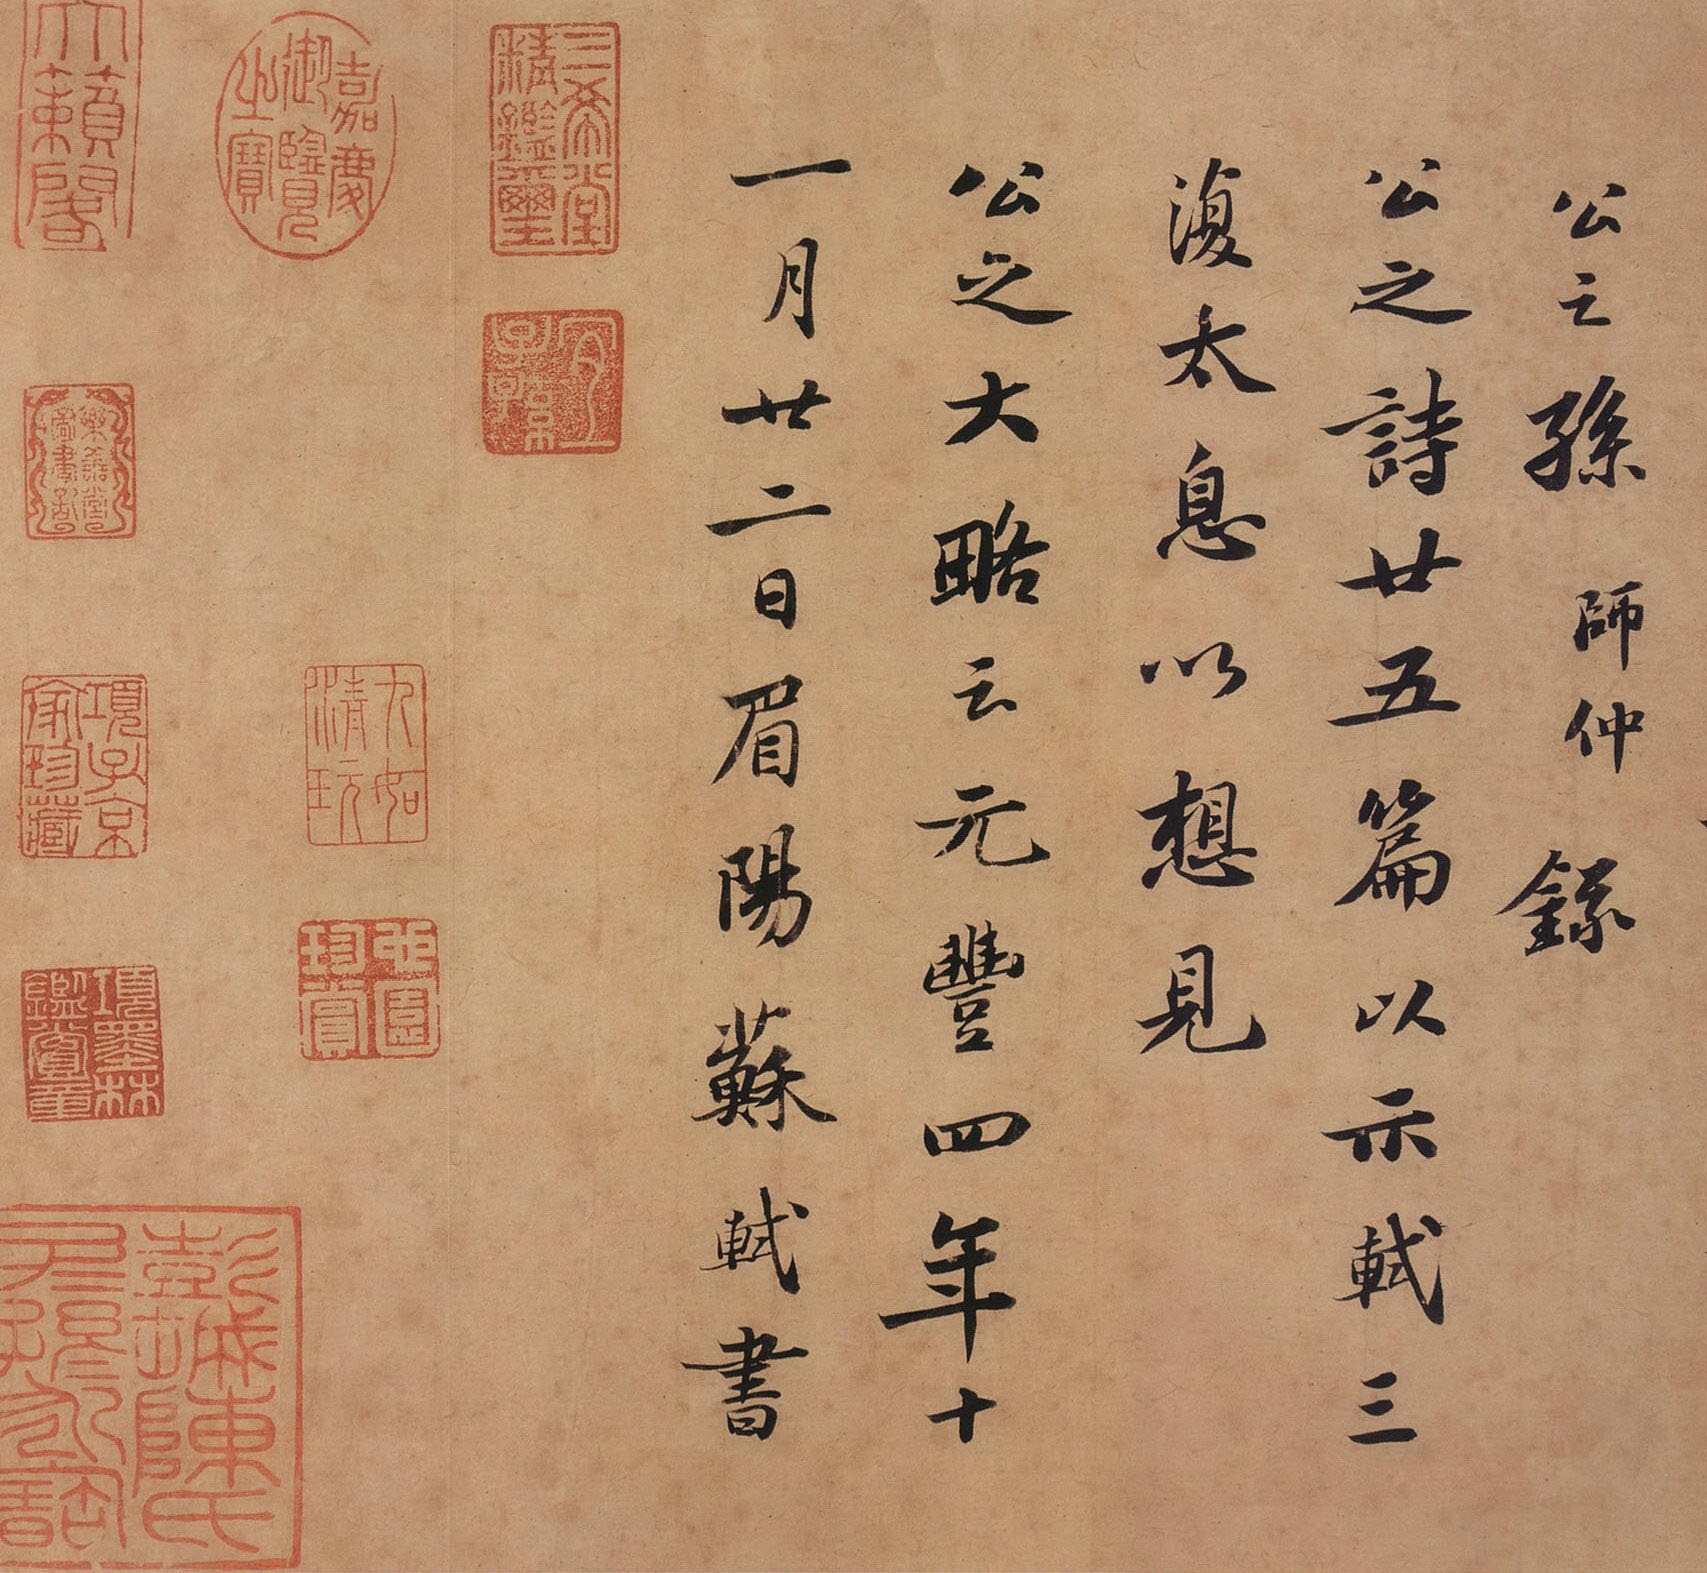 公之孫師仲錄
公之詩廿五篇以示軾三
復太息以想見
公之大略云元豐四年十
一月廿二日眉陽蘇軾書
三希堂
精鑑璽
宜
子孫
嘉慶
御覽
之寶
天籟閣
樂善堂
圖書記
項子京
家珍藏
九如
清玩
項墨林
鑑賞章
珍賞
彭城陳氏